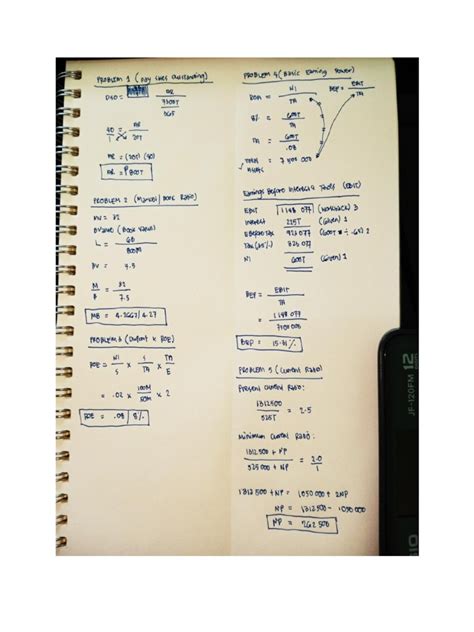 PROBLEM 1 (Day sales Outstanding)
DSO = AR
7300T
365
40 = AR
1 20T
AR = (20T) (40)
AR = ₱800T
PROBLEM 2 (Market/Book Ratio)
MV = 32
BValue (Book Value)
= 6B
800M
BV = 7.5
M = 32
B 7.5
MB = 4.2667/4.27
PROBLEM 3 (Dupont & ROE)
ROE = NI x S x TA
S TA E
= .02 x 100M x 2
50M
ROE = .08/8%
PROBLEM 4 (Basic Earning Power)
ROA = NI
TA
BEP = EBIT
TA
8% = 600T
TA
TA = 600T
.08
Total Assets = 7 500 000
Earnings Before Interest & Taxes (EBIT)
EBIT 1 148 077 3
Interest 225T (Given) 1
EBefore tax 923 077 (600T ÷ .65) 2
Tax (35%) 323 077
NI 600T (Given) 1
BEP = EBIT
TA
= 1 148 077
7 500 000
BEP = 15.31%
PROBLEM 5 (Current Ratio)
Present Current Ratio:
1312500 = 2.5
525T
Minimum Current Ratio:
1312 500 + NP = 2.0
525 000 + NP 1
1312 500 + NP = 1050 000 + 2NP
NP = 1312 500 - 1050 000
NP = 262 500
JF-120FM 12